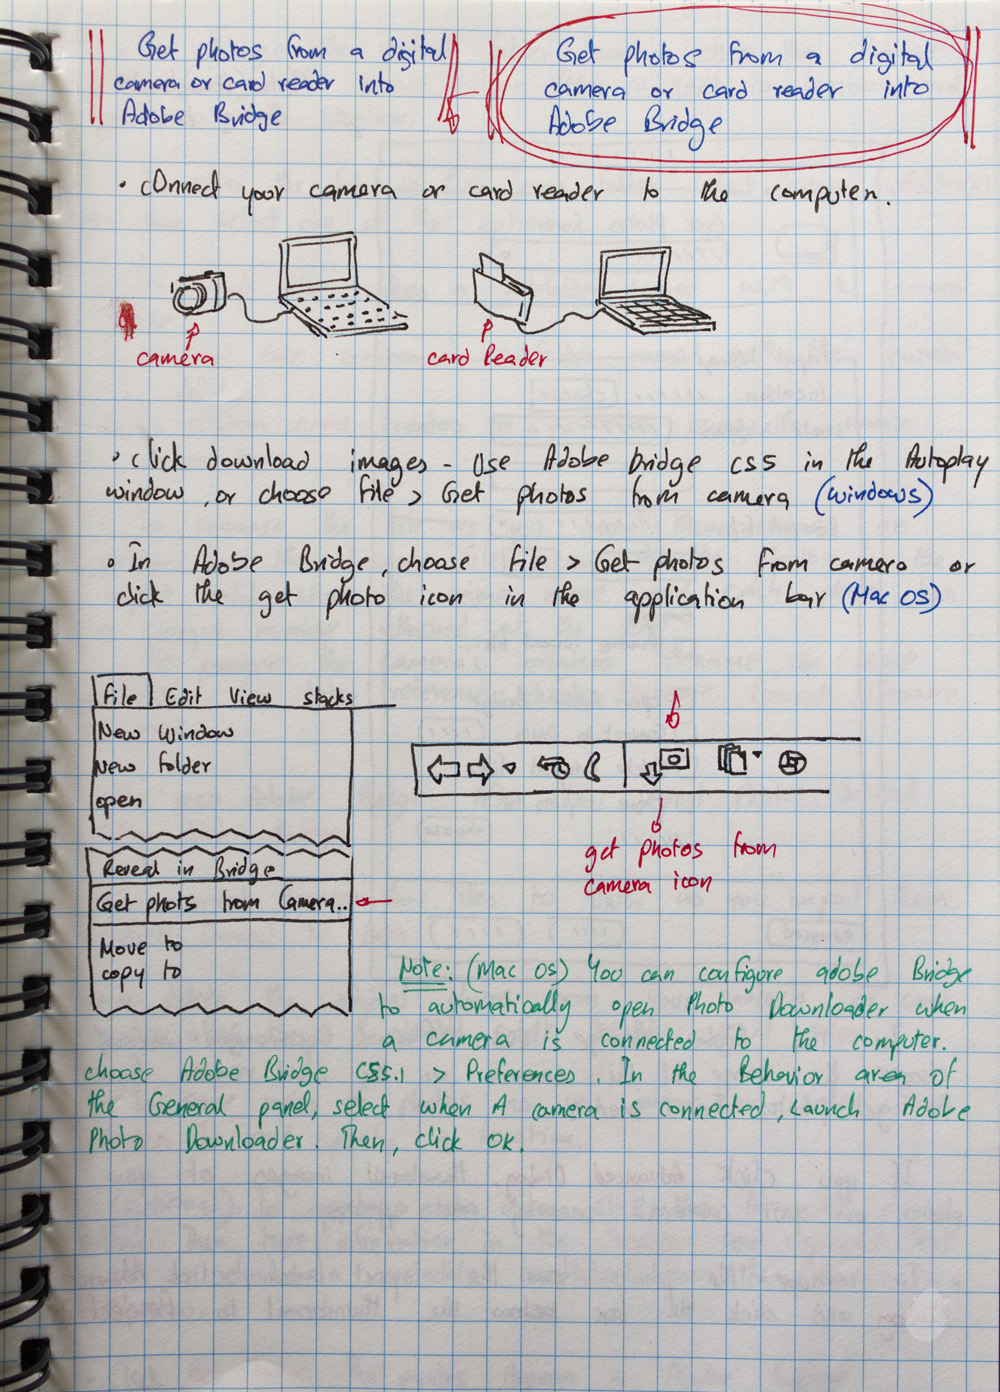 Get photos from a digital
camera or card reader into
Adobe Bridge
Get photos from a digital
camera or card reader into
Adobe Bridge
• cOnnect your camera or card reader to the computer.
camera
card Reader
• click download images - Use Adobe bridge CS5 in the Autoplay
window, or choose file > Get photos from camera (windows)
• In Adobe Bridge, choose file > Get photos from camera or
click the get photo icon in the application bar (Mac OS)
File Edit View stacks
New window
New folder
open
Reveal in Bridge
Get phots from Camera..
Move to
copy to
get photos from
camera icon
Note: (Mac OS) You can configure adobe Bridge
to automatically open Photo Downloader when
a camera is connected to the computer.
choose Adobe Bridge CS5.1 > Preferences. In the Behavior area of
the General panel, select when A camera is connected, Launch Adobe
Photo Downloader. Then, click ok.